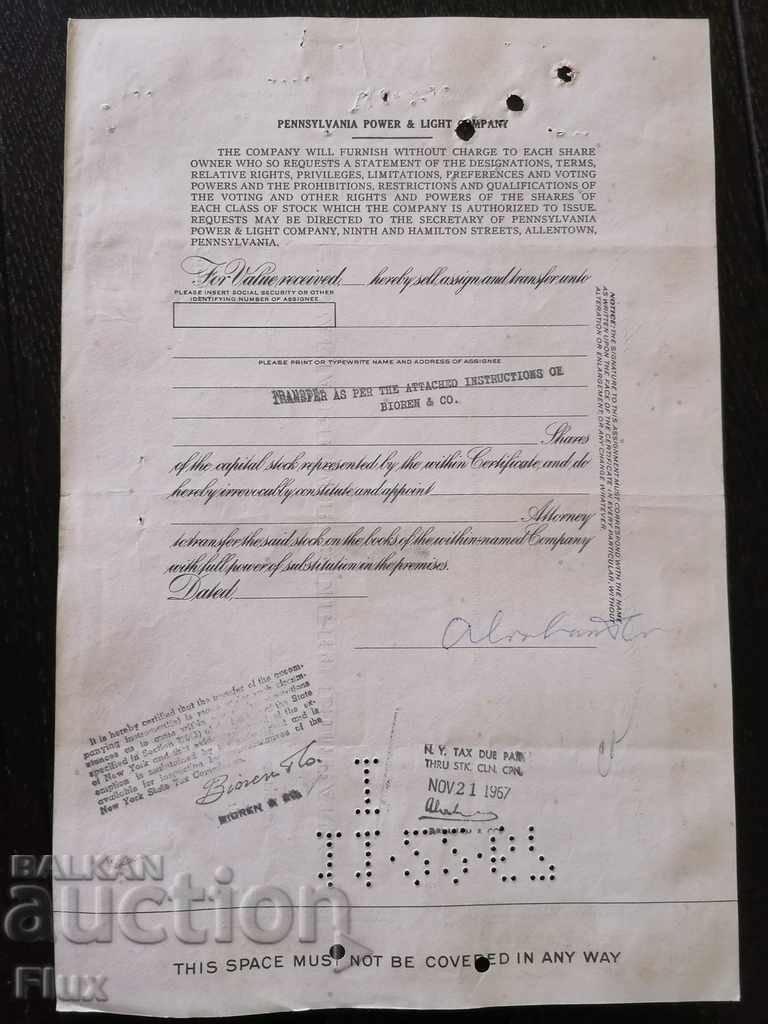 PENNSYLVANIA POWER & LIGHT COMPANY
THE COMPANY WILL FURNISH WITHOUT CHARGE TO EACH SHARE
OWNER WHO SO REQUESTS A STATEMENT OF THE DESIGNATIONS, TERMS,
RELATIVE RIGHTS, PRIVILEGES, LIMITATIONS, PREFERENCES AND VOTING
POWERS AND THE PROHIBITIONS, RESTRICTIONS AND QUALIFICATIONS OF
THE VOTING AND OTHER RIGHTS AND POWERS OF THE SHARES OF
EACH CLASS OF STOCK WHICH THE COMPANY IS AUTHORIZED TO ISSUE.
REQUESTS MAY BE DIRECTED TO THE SECRETARY OF PENNSYLVANIA
POWER & LIGHT COMPANY, NINTH AND HAMILTON STREETS, ALLENTOWN,
PENNSYLVANIA.
For Value received, hereby sell, assign and transfer unto
PLEASE INSERT SOCIAL SECURITY OR OTHER
IDENTIFYING NUMBER OF ASSIGNEE
PLEASE PRINT OR TYPEWRITE NAME AND ADDRESS OF ASSIGNEE
TRANSFER AS PER THE ATTACHED INSTRUCTIONS OF
BIOREN & CO.
Shares
of the capital stock represented by the within Certificate, and do
hereby irrevocably constitute and appoint
Attorney
to transfer the said stock on the books of the within-named Company
with full power of substitution in the premises.
Dated,
NOTICE: THE SIGNATURE TO THIS ASSIGNMENT MUST CORRESPOND WITH THE NAME
AS WRITTEN UPON THE FACE OF THE CERTIFICATE IN EVERY PARTICULAR, WITHOUT
ALTERATION OR ENLARGEMENT OR ANY CHANGE WHATEVER.
It is hereby certified that the transfer of the accom-
panying
specified in Section
of New York and that
available for inspection by
New York State Tax
Bioren & Co.
BIOREN & CO.
N. Y. TAX DUE PAID
THRU STK. CLN. CPN.
NOV 21 1967
BALKAN
auction
Flux
THIS SPACE MUST NOT BE COVERED IN ANY WAY